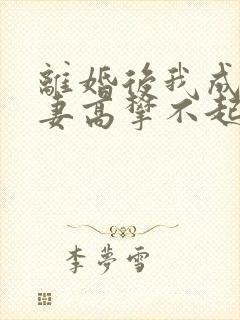 離婚後我成
妻高攀不起
李夢雪